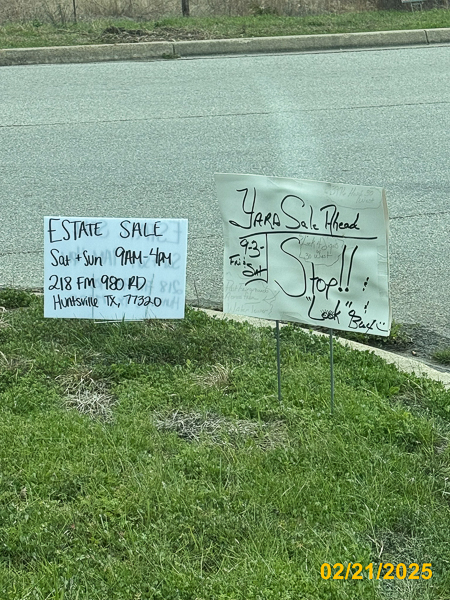 ESTATE SALE
Sat + Sun 9AM-4PM
218 FM 980 RD
Huntsville TX, 77320
Yard Sale Ahead
9-3-
Fri & Sat
Stop!!
"Look" &
Buy!
02/21/2025